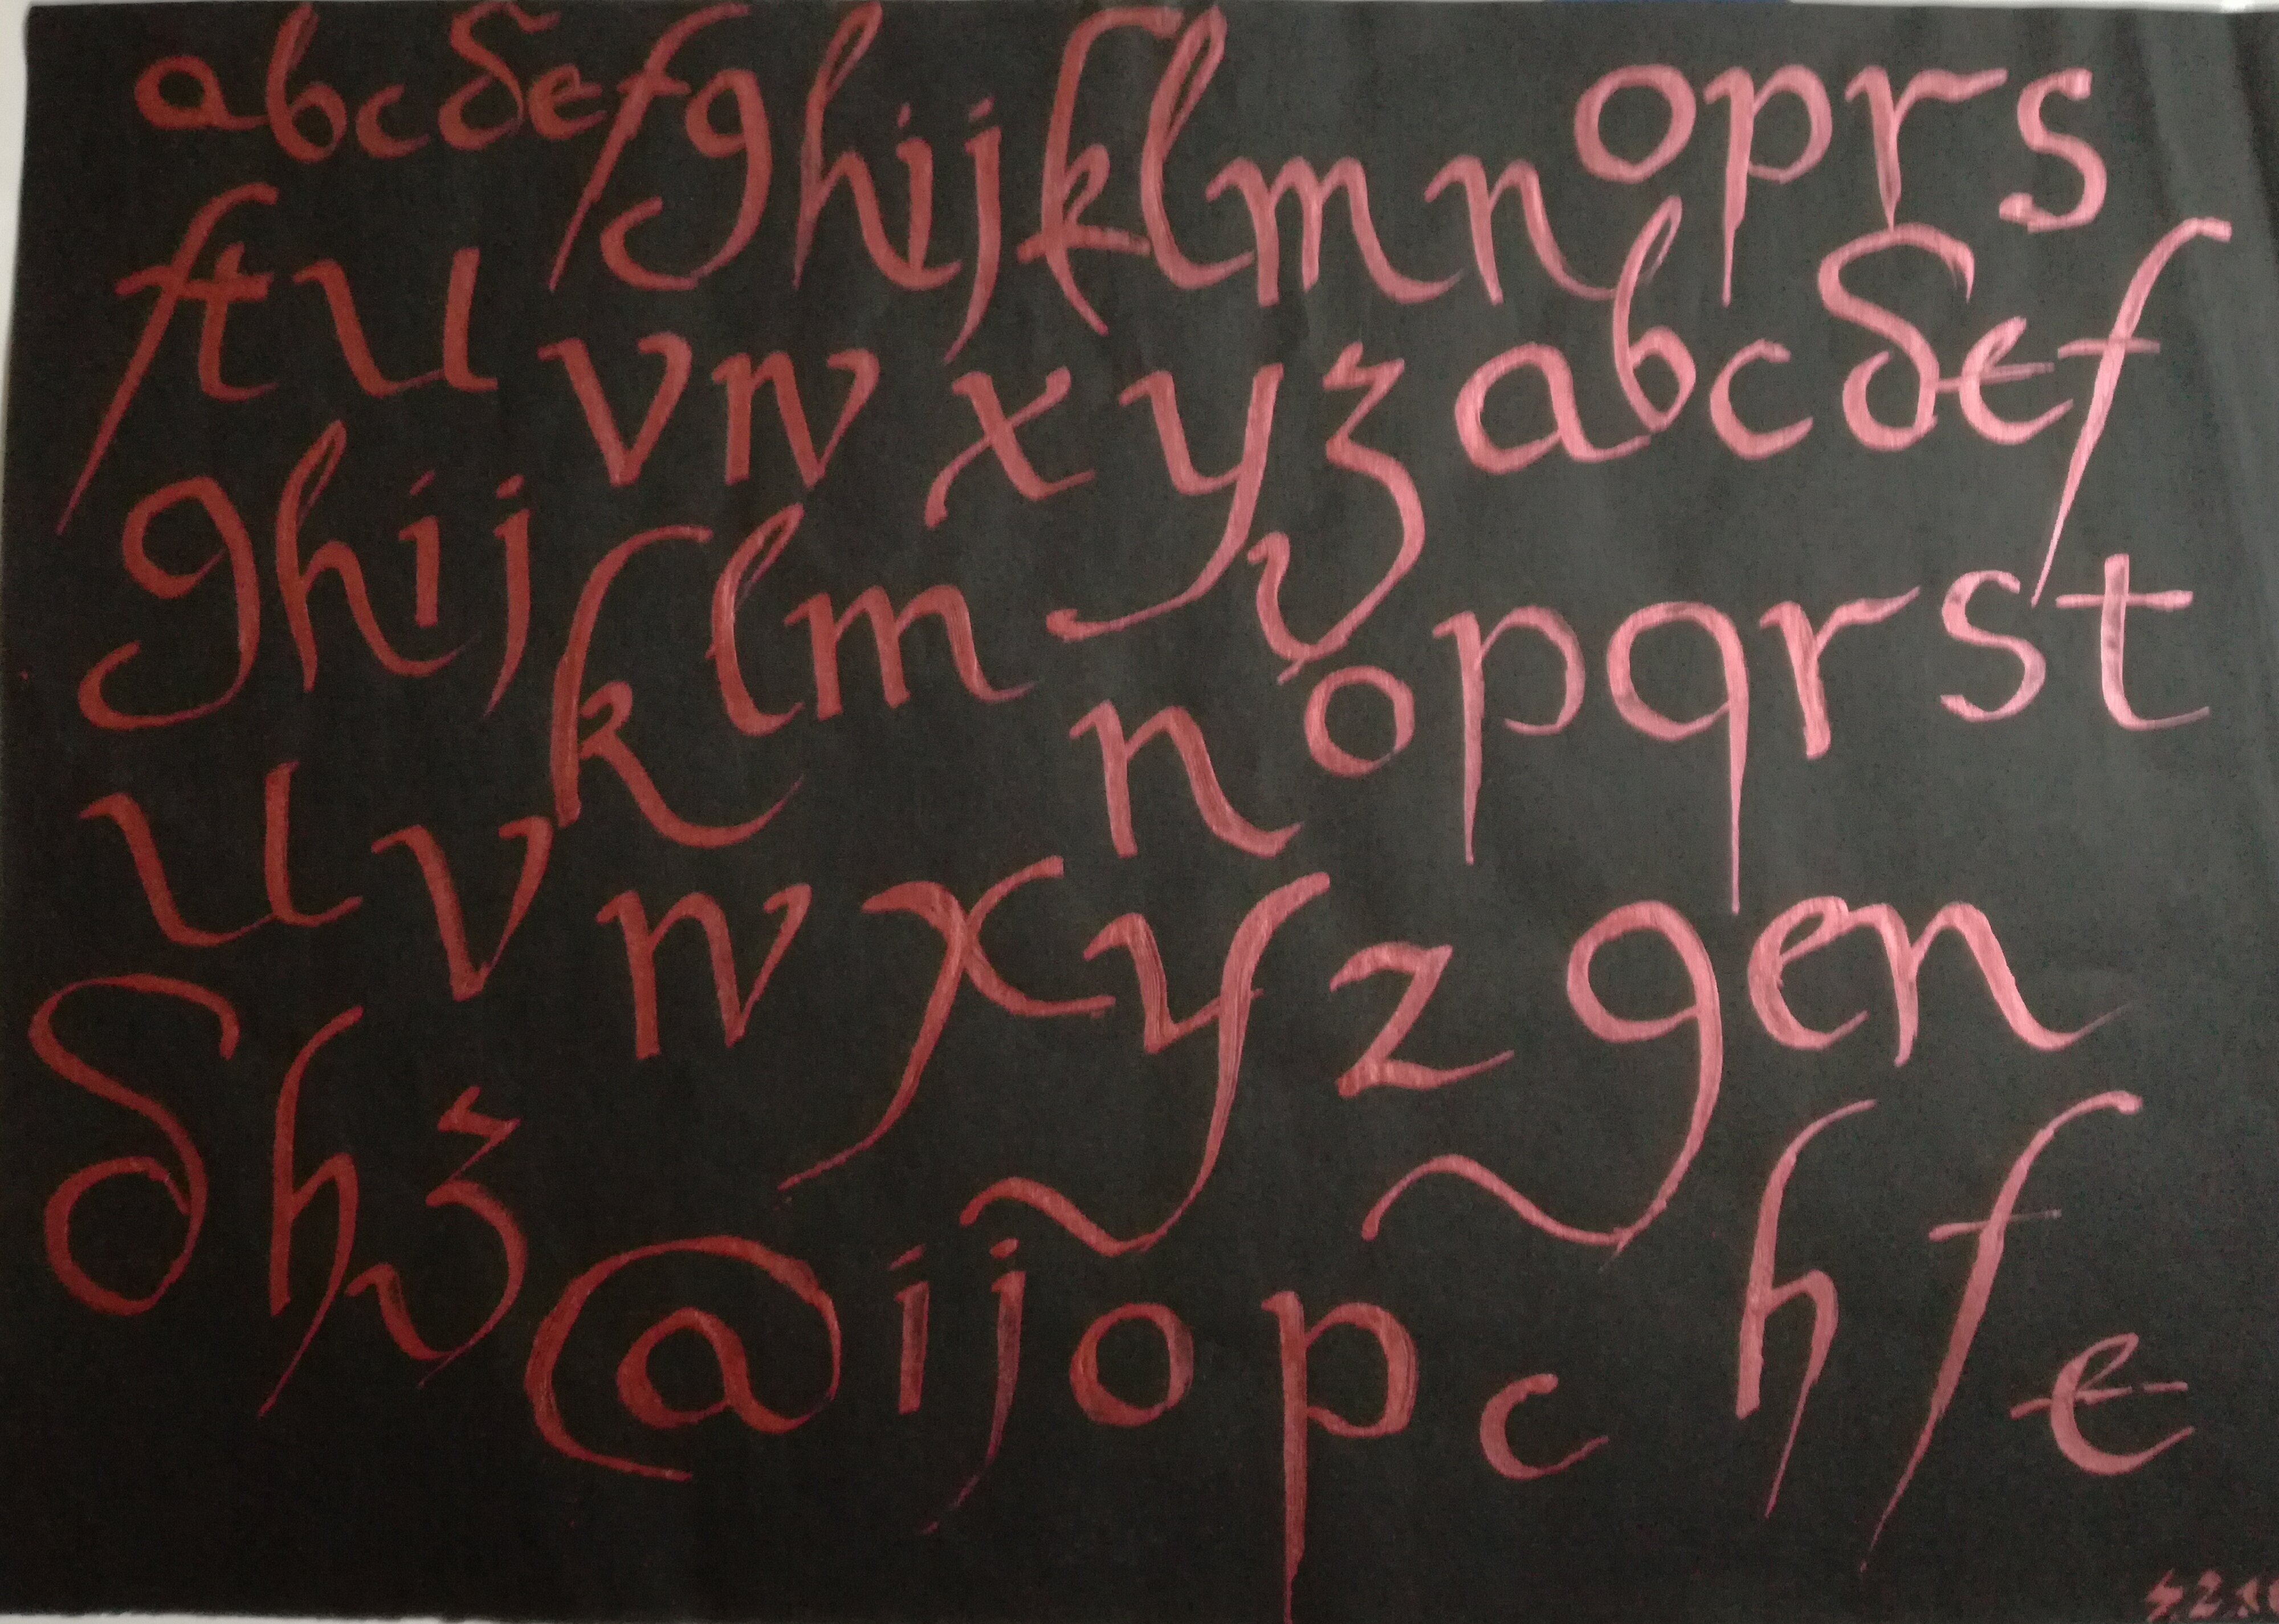 abcdefghijklmnoprs
ftuvwxyzabcdef
ghijklmnopqrst
uvwxyzgen
dhz@ijopchfe